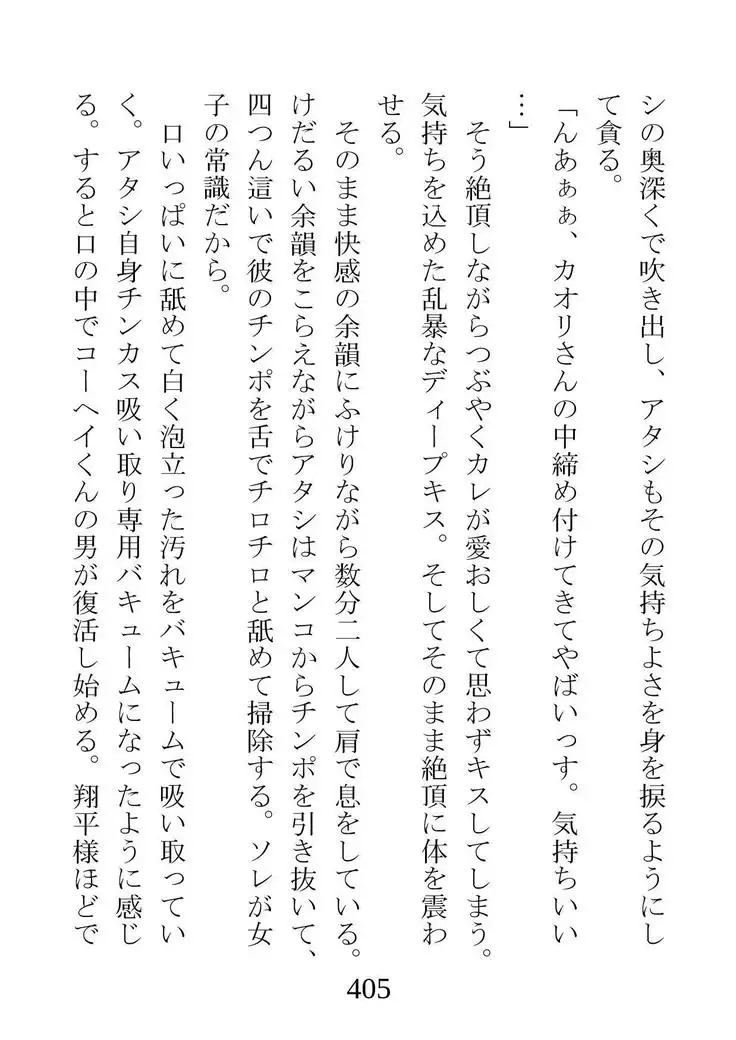 シの奥深くで吹き出し、アタシもその気持ちよさを身を捩るようにし
て貪る。
「んあぁぁ、カオリさんの中締め付けてきてやばいっす。気持ちいい
…」
そう絶頂しながらつぶやくカレが愛おしくて思わずキスしてしまう。
気持ちを込めた乱暴なディープキス。そしてそのまま絶頂に体を震わ
せる。
そのまま快感の余韻にふけりながら数分二人して肩で息をしている。
けだるい余韻をこらえながらアタシはマンコからチンポを引き抜いて、
四つん這いで彼のチンポを舌でチロチロと舐めて掃除する。ソレが女
子の常識だから。
口いっぱいに舐めて白く泡立った汚れをバキュームで吸い取ってい
く。アタシ自身チンカス吸い取り専用バキュームになったように感じ
る。すると口の中でコーヘイくんの男が復活し始める。翔平様ほどで
405